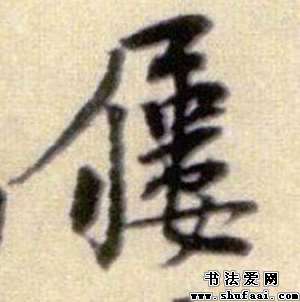 偃
书法爱网
www.shufaai.com